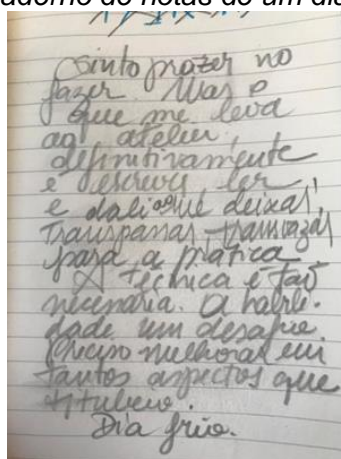 caderno de notas de um dia
Sinto prazer no
fazer. Mas o
que me leva
ao atelier,
definitivamente
é escrever, ler
e dali me deixar
transpassar, transvazar
para a prática.
A técnica é tão
necessária. A habili-
dade um desafio.
Preciso melhorar em
tantos aspectos que
titubeio.
Dia frio.